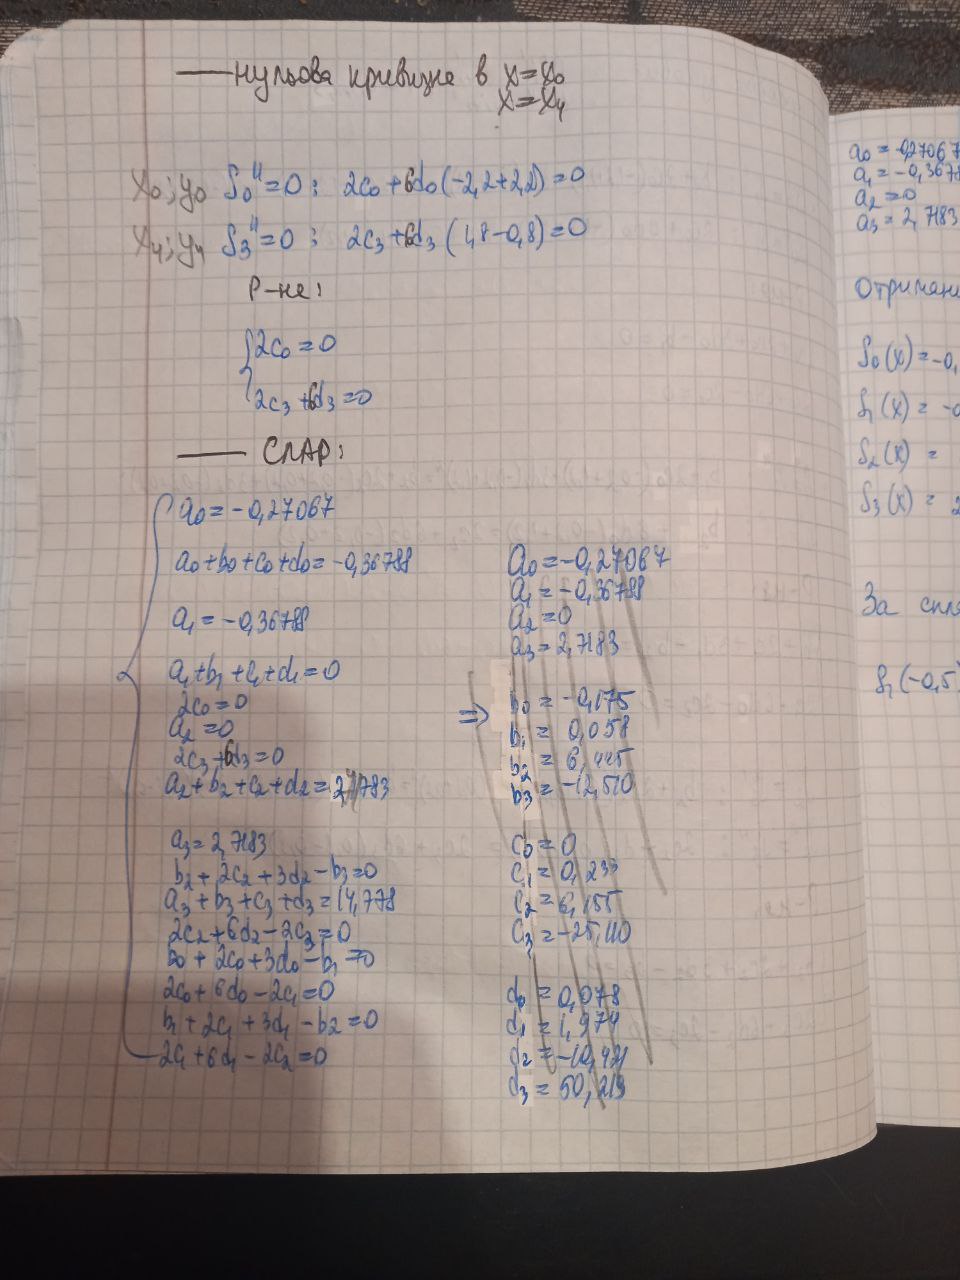 — нульова кривизна в x=x₀
x=x₄
x₀;y₀ S₀''=0: 2c₀+6d₀(-2,2+2,2)=0
x₄;y₄ S₃''=0: 2c₃+6d₃(1,8-0,8)=0
Р-не:
2c₀=0
2c₃+6d₃=0
— СЛАР:
a₀=-0,27067
a₀+b₀+c₀+d₀=-0,36788
a₁=-0,36788
a₁+b₁+c₁+d₁=0
2c₀=0
a₂=0
2c₃+6d₃=0
a₂+b₂+c₂+d₂=2,7183
a₃=2,7183
b₂+2c₂+3d₂-b₃=0
a₃+b₃+c₃+d₃=14,778
2c₂+6d₂-2c₃=0
b₀+2c₀+3d₀-b₁=0
2c₀+6d₀-2c₁=0
b₁+2c₁+3d₁-b₂=0
2c₁+6d₁-2c₂=0
⇒
a₀=-0,27067
a₁=-0,36788
a₂=0
a₃=2,7183
b₀=-0,175
b₁=0,058
b₂=6,445
b₃=-12,510
c₀=0
c₁=0,233
c₂=6,155
c₃=-25,110
d₀=0,078
d₁=1,974
d₂=-10,421
d₃=50,219
a₀=-0,27067
a₁=-0,3678
a₂=0
a₃=2,7183
Отримани
S₀(x)=-0,
S₁(x)=-0
S₂(x)=
S₃(x)=2
За спла
S₁(-0,5)